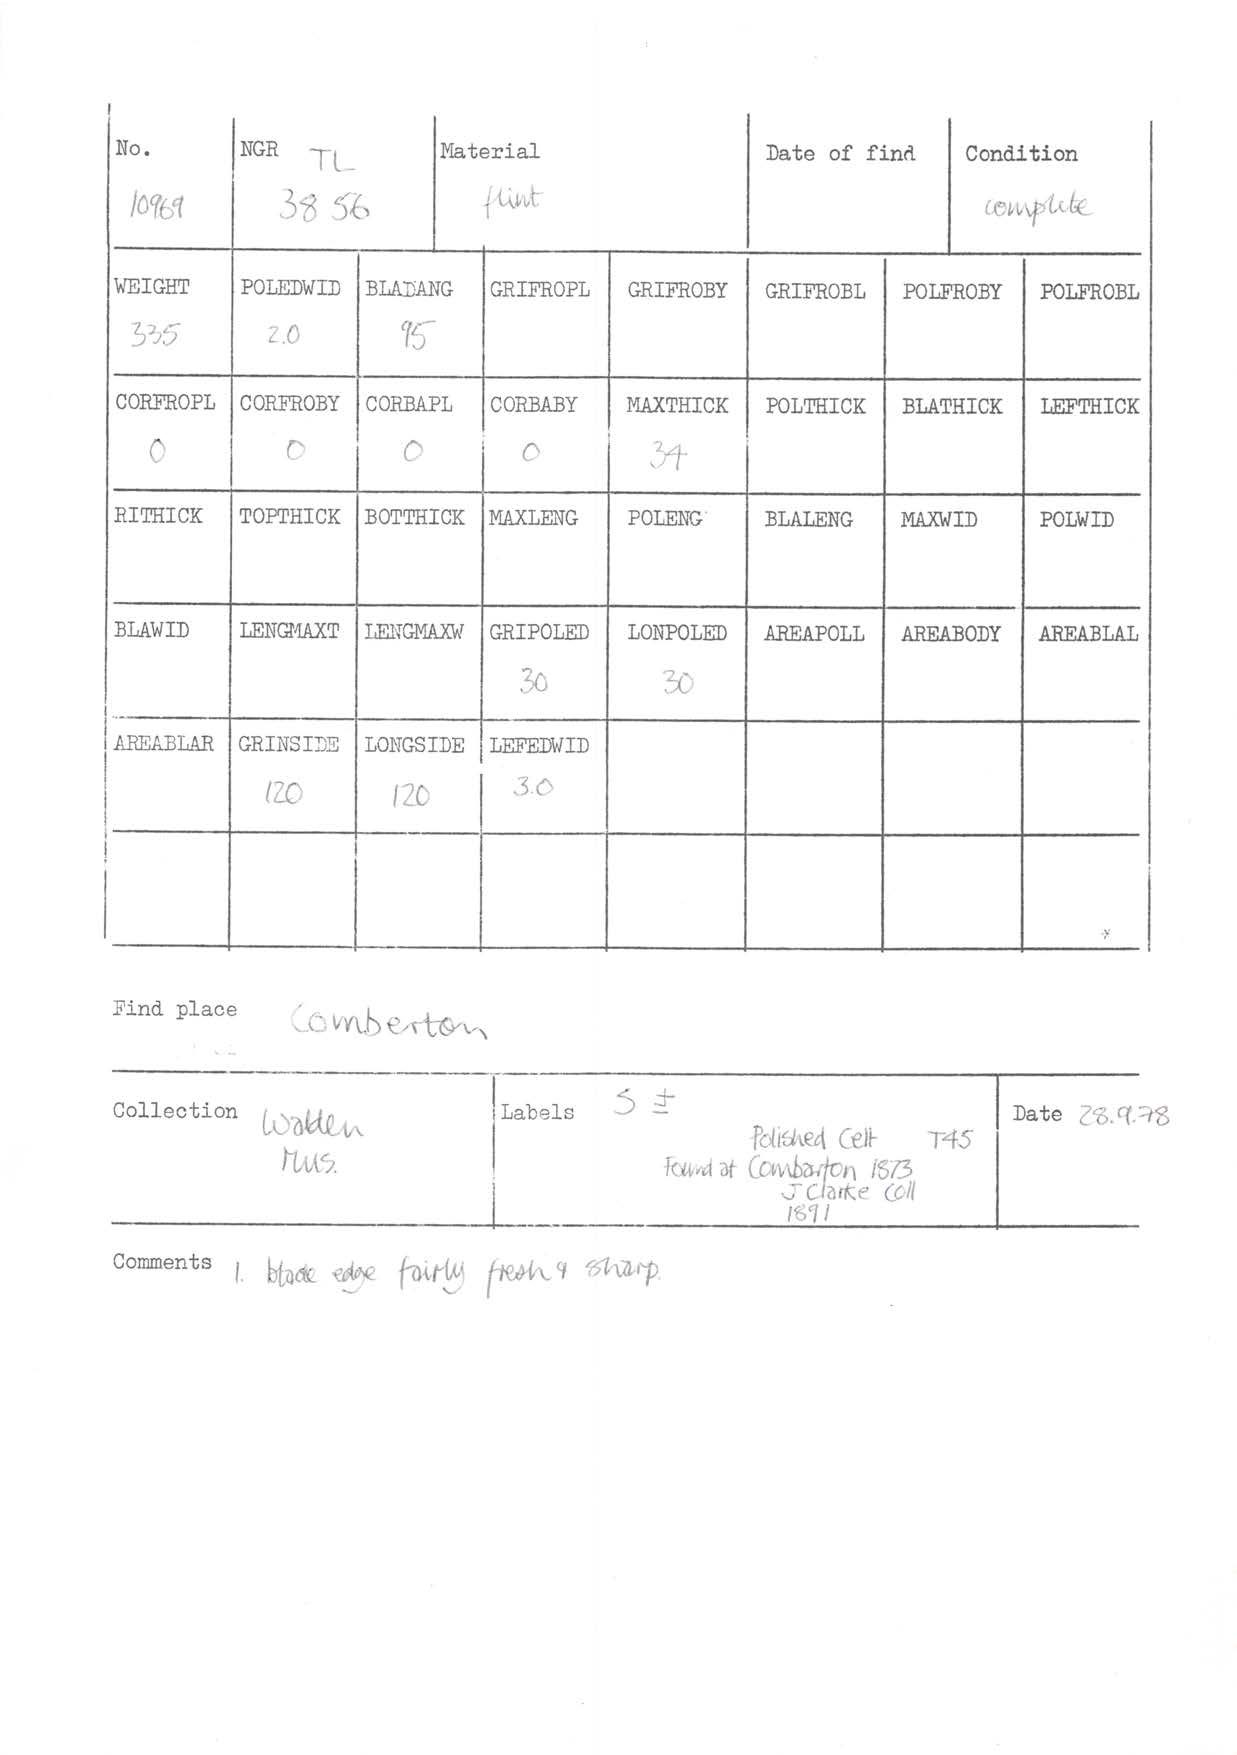 No. NGR TL Material Date of find Condition
10969 38 56 flint complete
WEIGHT POLEDWID BLADANG GRIFROPL GRIFROBY GRIFROBL POLFROBY POLFROBL
335 2.0 95
CORFROPL CORFROBY CORBAPL CORBABY MAXTHICK POLTHICK BLATHICK LEFTHICK
0 0 0 0 34
RITHICK TOPTHICK BOTTHICK MAXLENG POLENG BLALENG MAXWID POLWID
BLAWID LENGMAXT LENGMAXW GRIPOLED LONPOLED AREAPOLL AREABODY AREABLAL
30 30
AREABLAR GRINSIDE LONGSIDE LEFEDWID
120 120 3.0
Find place Comberton
Collection Walden Mus.
Labels 5 ±
Polished Celt T45
Found at Combarton 1873
J Clarke Coll
1891
Date 28.9.78
Comments 1. blade edge fairly fresh & sharp.